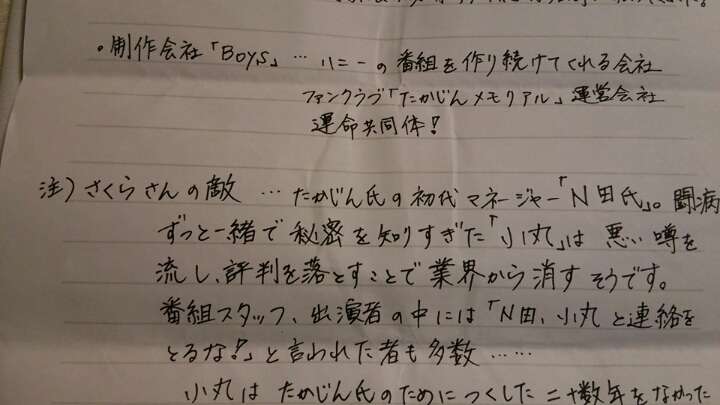 。制作会社「Boys」… ハニーの番組を作り続けてくれる会社
ファンクラブ「たかじんメモリアル」運営会社
運命共同体!
注)さくらさんの敵 … たかじん氏の初代マネージャー「N田氏」。闘病
ずっと一緒で秘密を知りすぎた「小丸」は悪い噂を
流し、評判を落とすことで業界から消すそうです。
番組スタッフ、出演者の中には「N田、小丸と連絡を
とるな!」と言われた者も多数……
小丸はたかじん氏のためにつくした二十数年をなかった